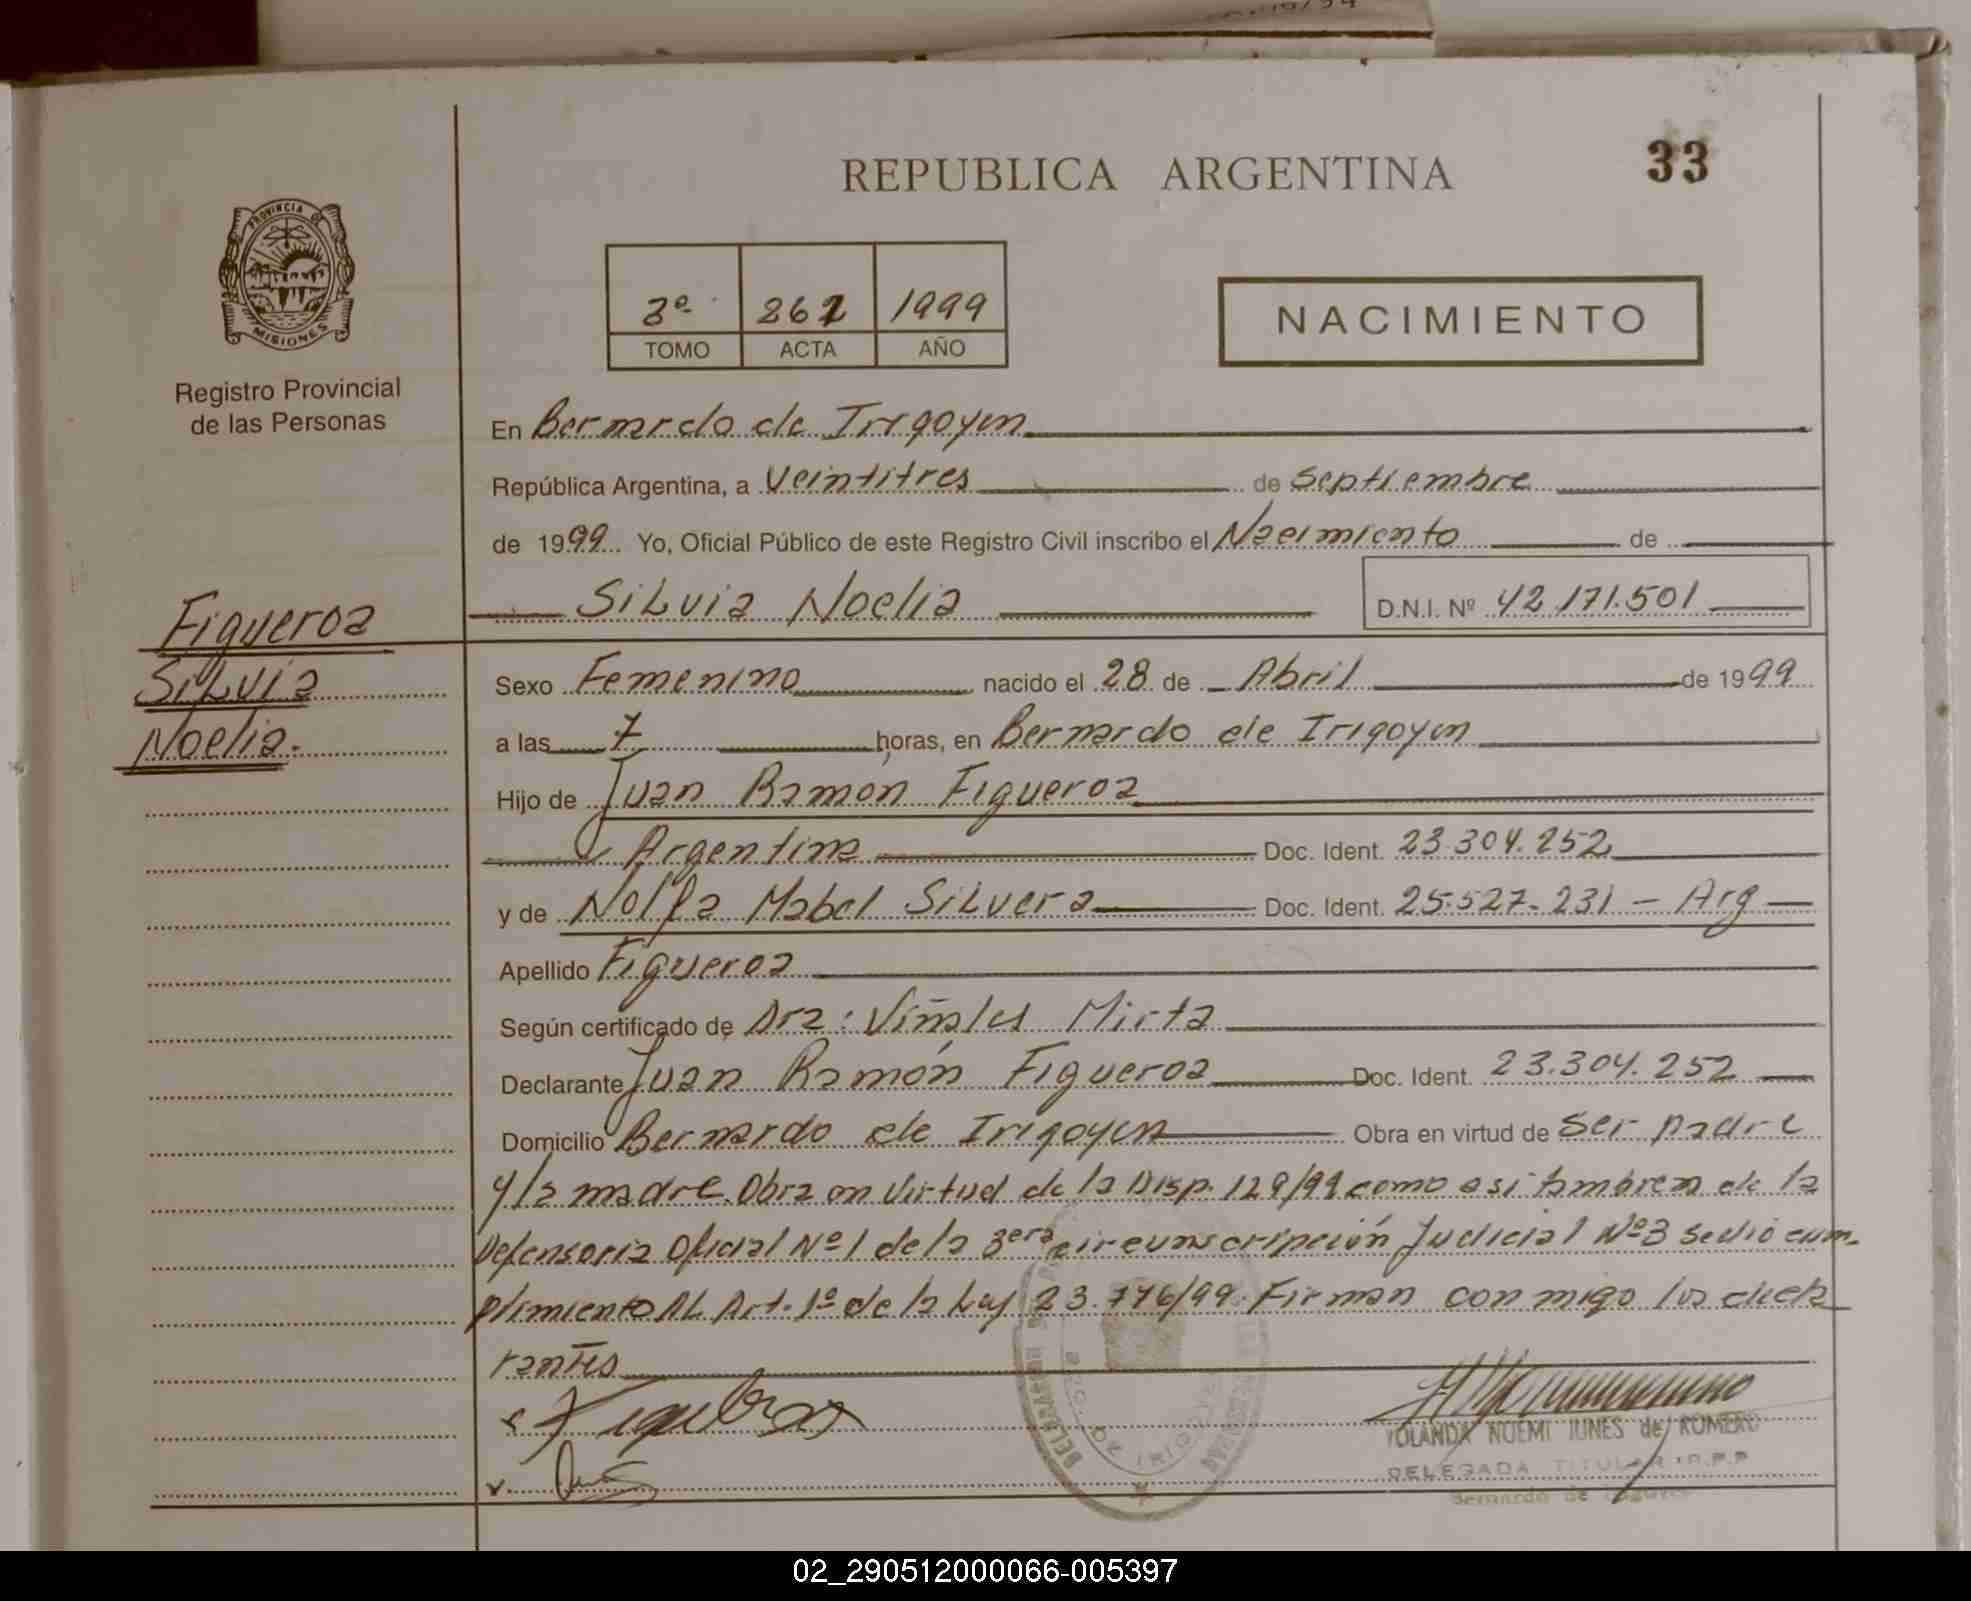 REPUBLICA ARGENTINA
33
PROVINCIA DE
MISIONES
Registro Provincial
de las Personas
3º 262 1999
TOMO ACTA AÑO
NACIMIENTO
En Bernardo de Irigoyen
República Argentina, a Veintitres de Septiembre
de 1999 Yo, Oficial Público de este Registro Civil inscribo el Nacimiento de
Silvia Noelia D.N.I. Nº 42.171.501
Figueroa
Silvia
Noelia.
Sexo Femenino nacido el 28 de Abril de 1999
a las 7 horas, en Bernardo de Irigoyen
Hijo de Juan Ramón Figueroa
Argentina Doc. Ident. 23.304.252
y de Nolfa Mabel Silvera Doc. Ident. 25.527.231 - Arg
Apellido Figueroa
Según certificado de Dra: Viñales Mirta
Declarante Juan Ramón Figueroa Doc. Ident. 23.304.252
Domicilio Bernardo de Irigoyen Obra en virtud de ser padre
y la madre Obra en Virtud de la Disp. 129/99 como asi tambien de la
Defensoria Oficial Nº 1 de la 3era circunscripción Judicial Nº3 se dió cum-
plimiento AL Art. 1º de la Ley 23.776/99. Firman con migo los decla
rantes
Figueroa
YOLANDA NOEMI JUNES de ROMERO
DELEGADA TITULAR R.P.P
Bernardo de Irigoyen
02_290512000066-005397